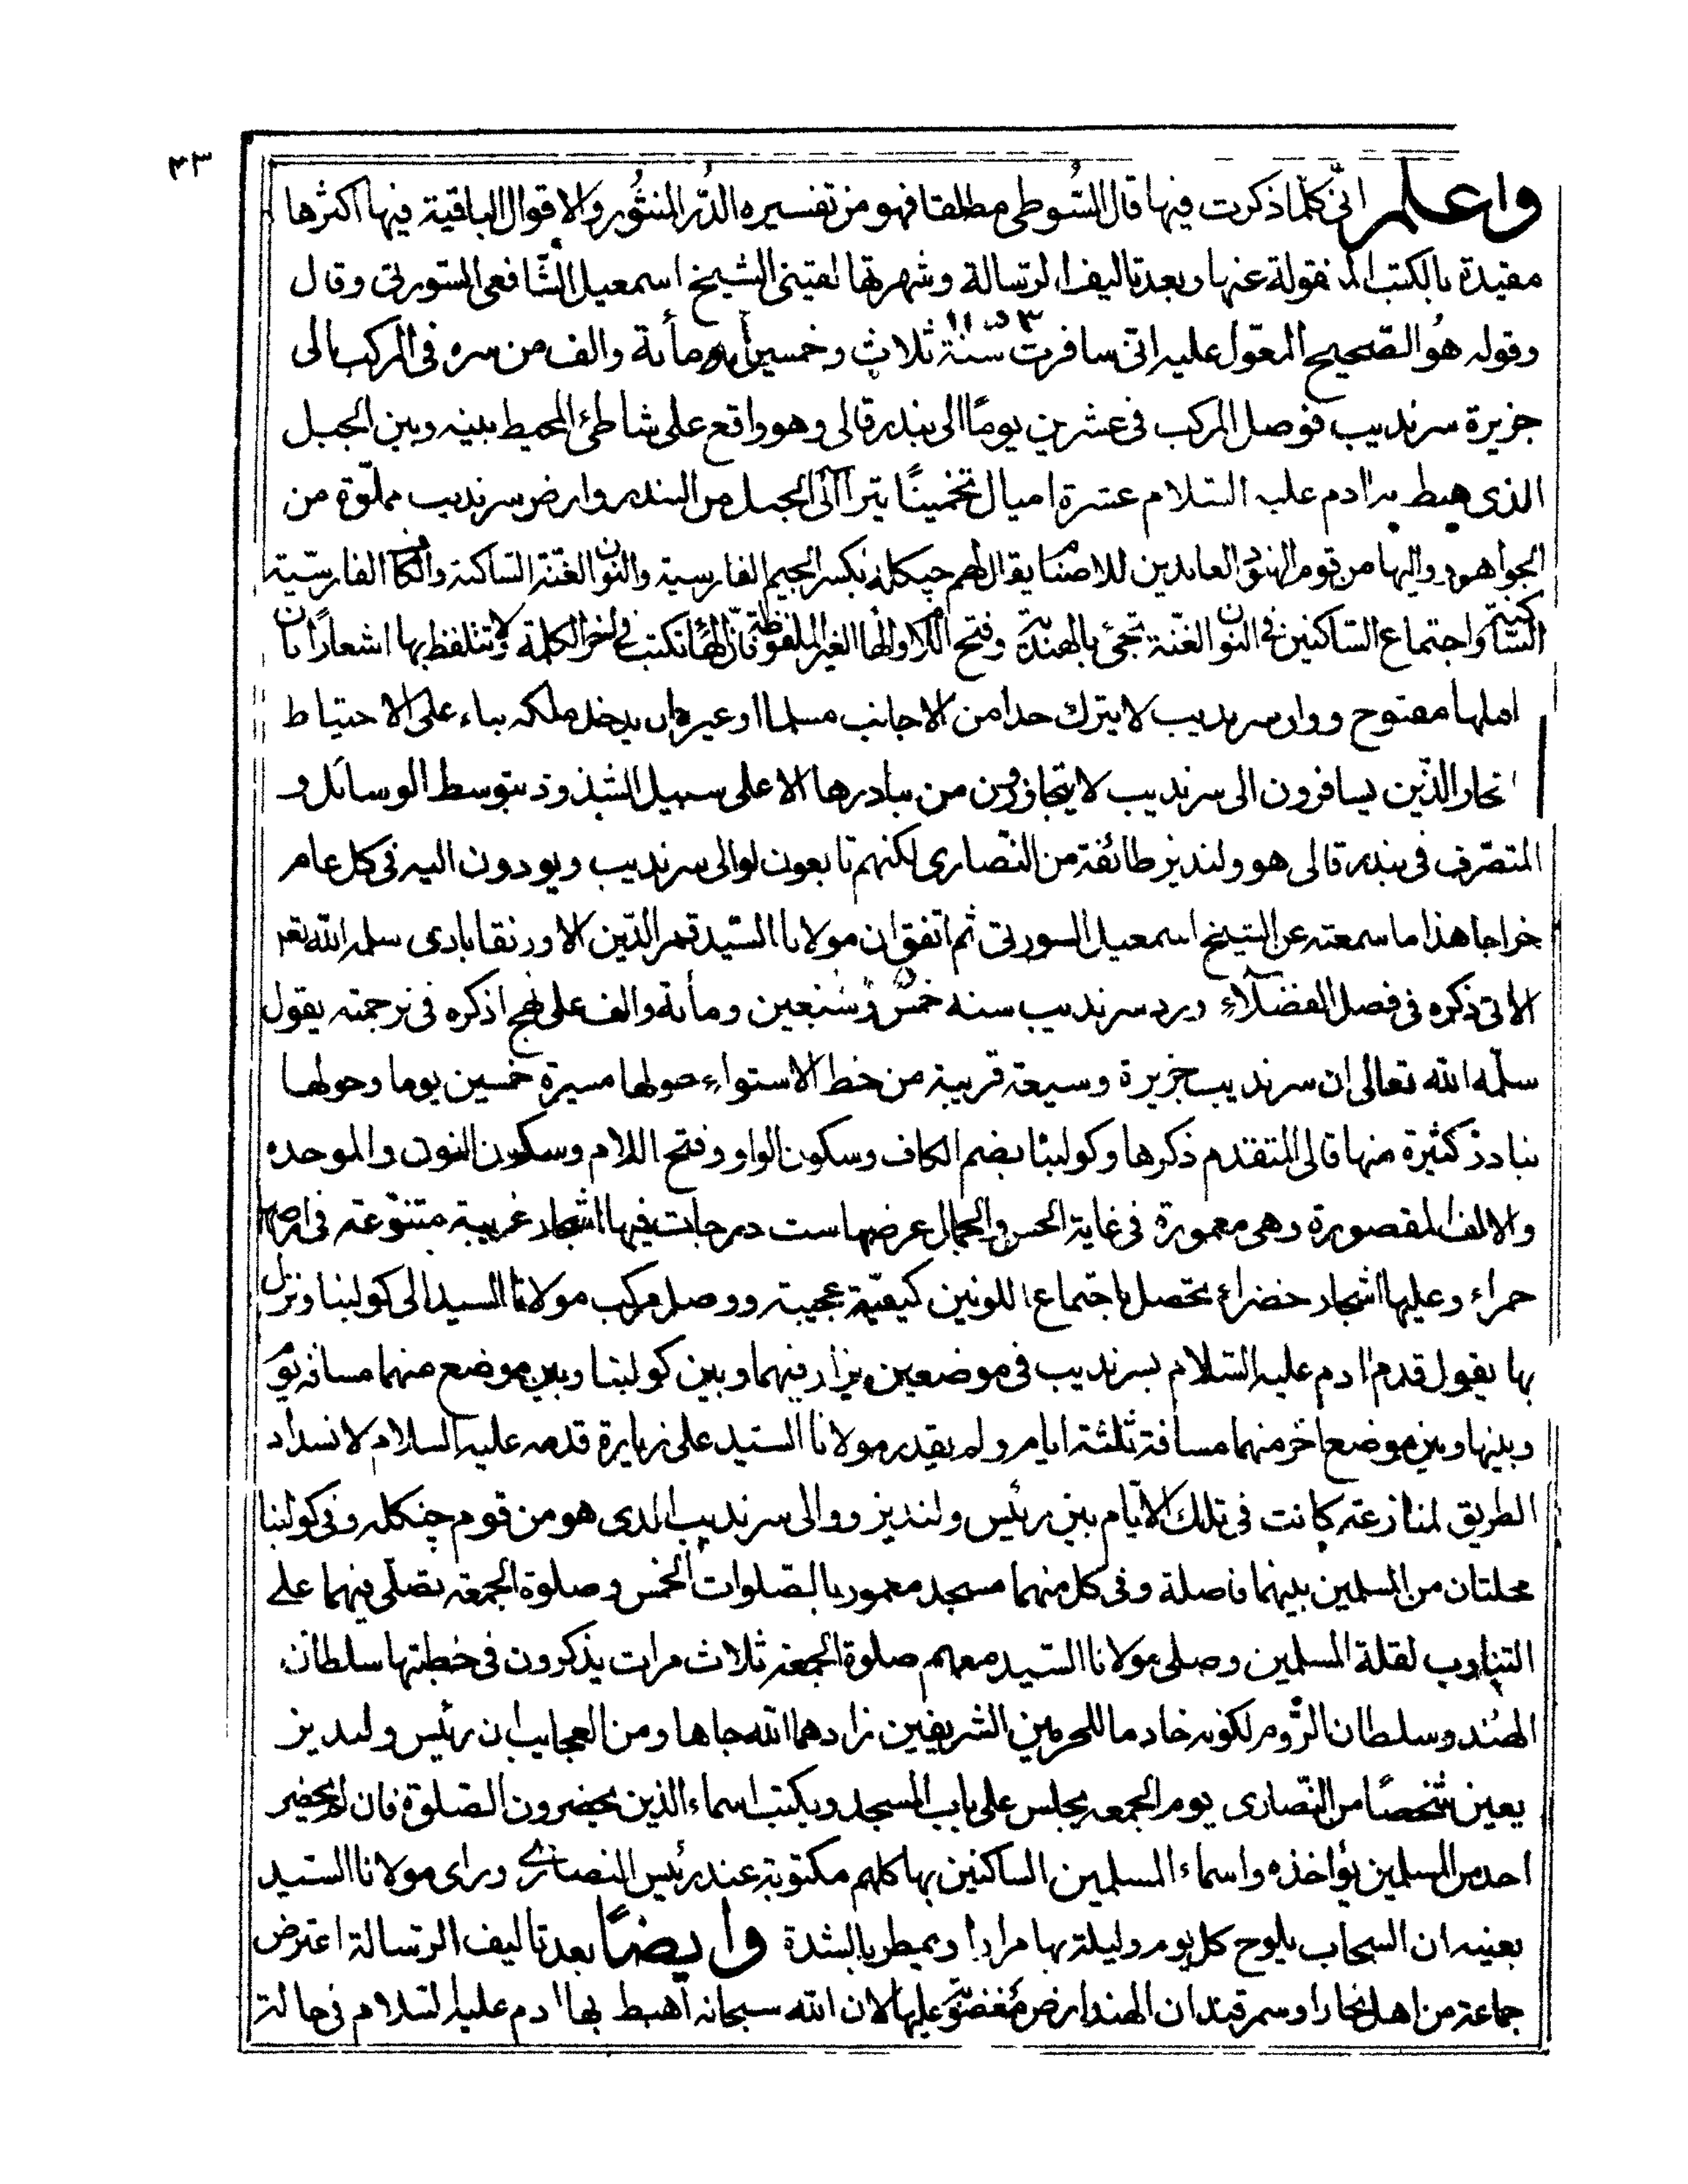 ٢٣
واعلم انّى كلّما ذكرت فيها قال السّيوطى مطلقا فهو من تفسيره الدّر المنثور والاقوال الباقية فيها اكثرها
مقيدة بالكتب المنقولة عنها وبعد تاليف الرسالة وشهرتها لقينى الشيخ اسمعيل الشّافعى السّورتى وقال
وقوله هو الصّحيح المعوّل عليه انى سافرت سنة ثلاث وخمسين ومأئة والف من سره فى المركب الى
جزيرة سرنديب فوصل المركب فى عشرين يومًا الى بندر قالى وهو واقع على شاطئ المحيط بينه وبين الجبل
الذى هبط به ادم عليه السّلام عشرة اميال تخمينًا يترأاى الجبل من البندر وارض سرنديب مملوّة من
الجواهر وواليها من قوم الهنود العابدين للاصنام يقال لهم چنكله بكسر الجيم الفارسية والنون الغنّة السّاكنة والكاف الفارسيّة
السّاكنة واجتماع السّاكنين فى النون الغنّة تجئ بالهندية وفتح اللام والهاء الغير الملفوظة فان الهاء تكتب فى اخر الكلمة ولا تتلفظ بها اشعارًا بان
املها مفتوح ووالى سرنديب لا يترك احدا من الاجانب مسلما او غيره ان يدخل ملكه بناء على الاحتياط
تجار الذّين يسافرون الى سرنديب لا يتجاوزون من بنادرها الا على سبيل الشذوذ بتوسط الوسائل و
المتصّرف فى بندر قالى هو ولنديز طائفة من النّصارى لكنهم تابعون لوالى سرنديب ويودون اليه فى كل عام
خراجا هذا ما سمعته عن الشيخ اسمعيل السورتى ثم اتفق ان مولانا السّيد قمر الدّين الاورنقابادى سلمه الله تعـ
الاتى ذكره فى فصل الفضلاء ورد سرنديب سنه خمس وسبعين ومأئة والف على نهج اذكره فى ترجمته يقول
سلّمه الله تعالى ان سرنديب جزيرة وسيعة قريبة من خط الاستواء حولها مسيرة خمسين يوما وحولها
بنادر كثيرة منها قالى المتقدم ذكرها وكولنبا بضم الكاف وسكون الواو وفتح اللام وسكون النون والموحده
والالف المقصورة وهى معمورة فى غاية الحسن والجمال عرضها ست درجات فيها اشجار غريبة متنوّعة فى ارض
حمراء وعليها اشجار خضراء تحصل باجتماع اللونين كيفيّة عجيبة ووصل مركب مولانا السيد الى كولنبا ونزل
بها يقول قدم ادم عليه السّلام بسرنديب فى موضعين يزار فيهما وبين كولنبا وبين موضع منهما مسافة يوم
وبينها وبين موضع اخر منهما مسافة ثلثة ايام ولم يقدر مولانا السّيد على زيارة قدمه عليه السلام لانسداد
الطريق لمنازعة كانت فى تلك الايّام بين رئيس ولنديز ووالى سرنديب الذى هو من قوم چنكله وفى كولنبا
محلتان من المسلمين بينهما فاصلة وفى كل منهما مسجد معمور بالصّلوات الخمس وصلوة الجمعة تصلّى فيهما على
التناوب لقلة المسلمين وصلى مولانا السّيد معهم صلوة الجمعة ثلاث مرات يذكرون فى خطبتها سلطان
الهند وسلطان الرّوم لكونه خادما للحرمين الشريفين زادهما الله جاها ومن العجايب ان رئيس ولنديز
يعين شخصًا من النّصارى يوم الجمعه يجلس على باب المسجد ويكتب اسماء الذين يحضرون الصّلوة فان لم يحضر
احد من المسلمين يؤاخذه واسماء المسلمين الساكنين بها كلهم مكتوبة عند رئيس النصارى وراى مولانا السّيد
بعينه ان السحاب يلوح كل يوم وليلة بها مرارا ويمطر بالشدة وايضًا بعد تاليف الرسالة اعترض
جماعة من اهل بخارا وسمرقند ان الهند ارض مغضوب عليها لان الله سبحانه اهبط بها ادم عليه السّلام فى حالة